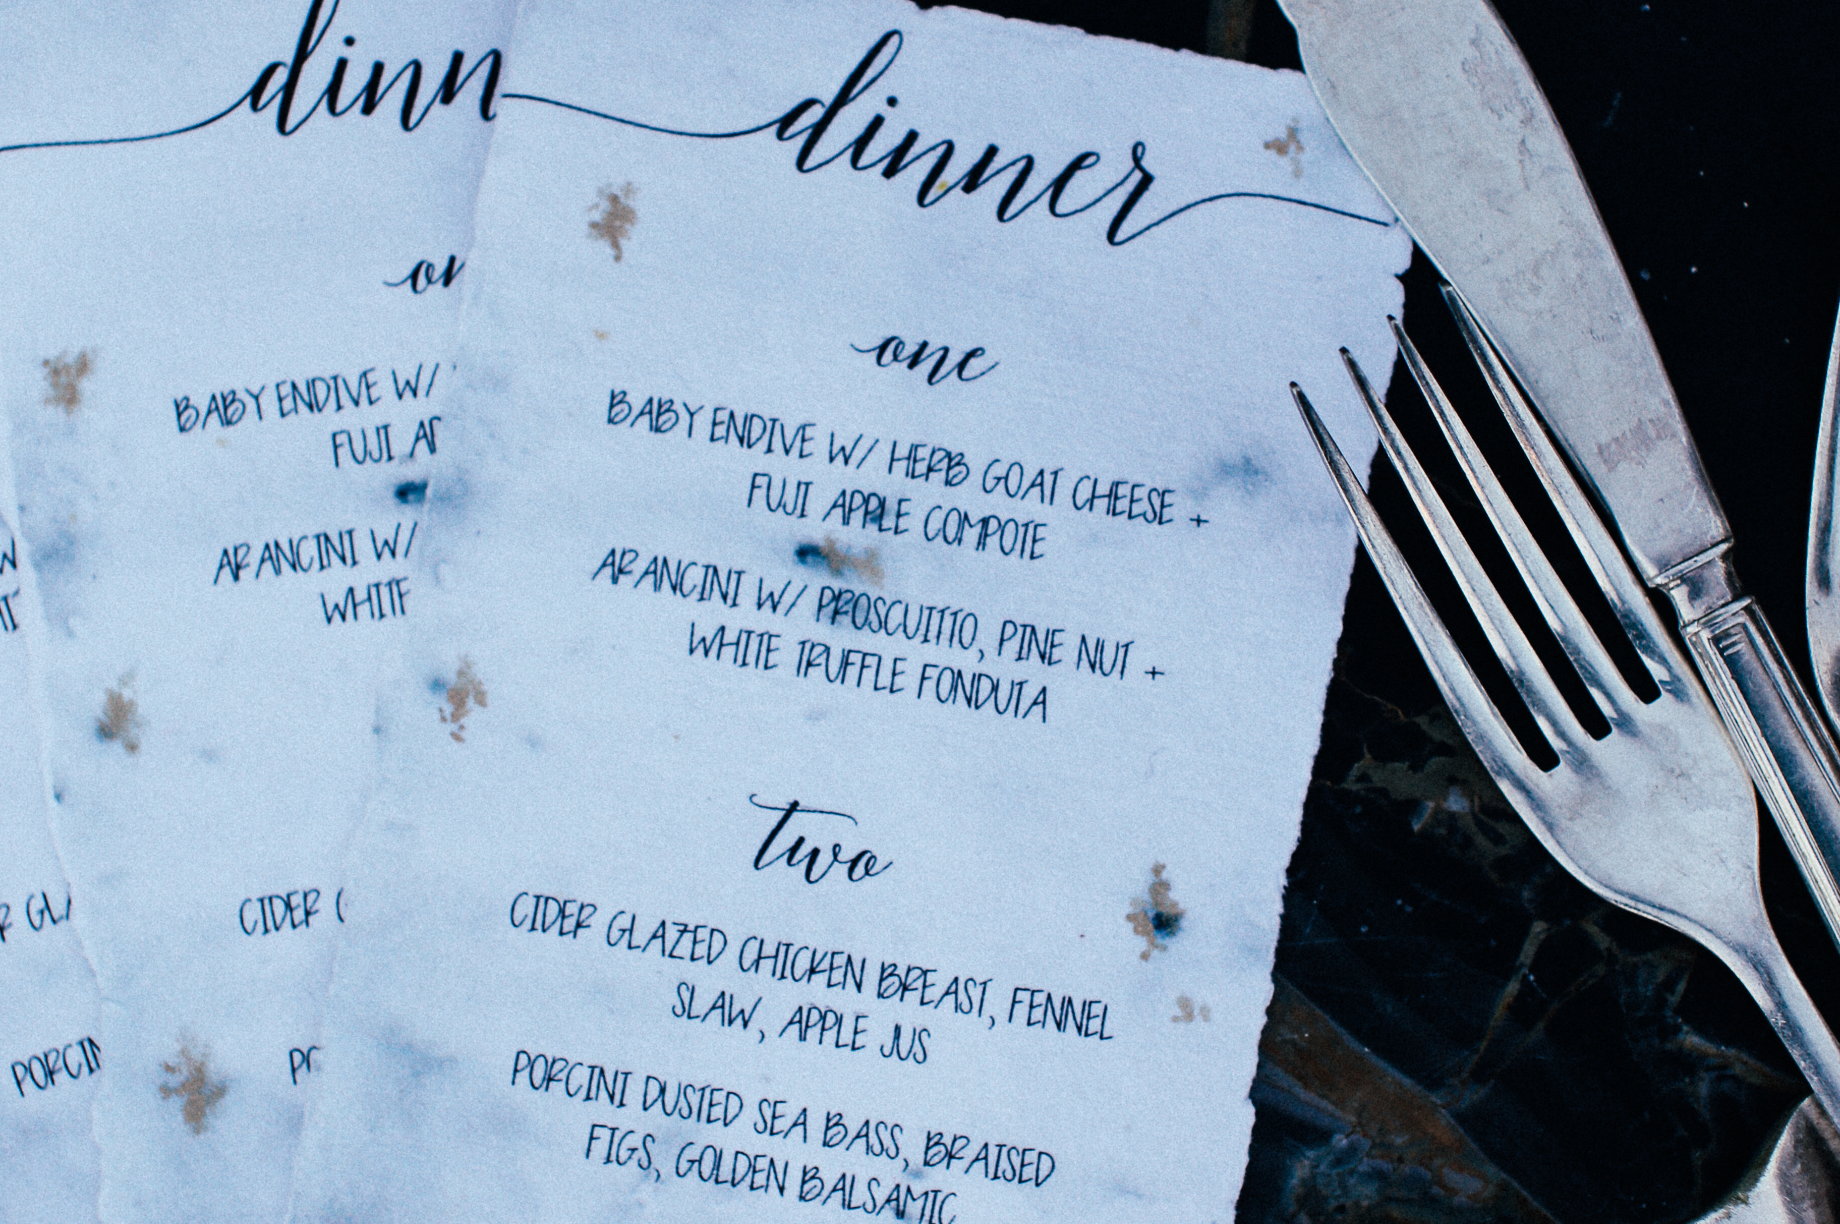 dinner
one
BABY ENDIVE W/ HERB GOAT CHEESE +
FUJI APPLE COMPOTE
ARANCINI W/ PROSCUITTO, PINE NUT +
WHITE TRUFFLE FONDUTA
two
CIDER GLAZED CHICKEN BREAST, FENNEL
SLAW, APPLE JUS
PORCINI DUSTED SEA BASS, BRAISED
FIGS, GOLDEN BALSAMIC
dinn
BABY ENDIVE W/
FUJI
ARANCINI W/
CIDER